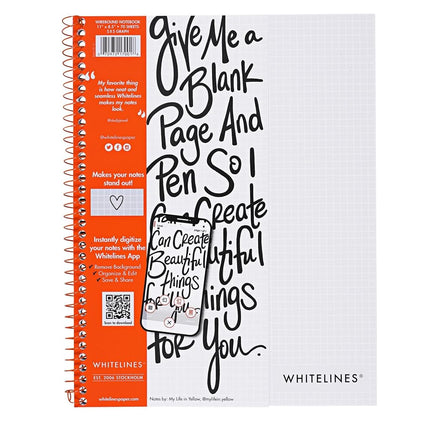 WIREBOUND NOTEBOOK
11" x 8.5" • 70 SHEETS
5X5 GRAPH
“
My favorite thing
is how neat and
seamless Whitelines
makes my notes
look.
@whitelinespaper
Makes your notes
stand out!
Instantly digitize
your notes with the
Whitelines App
✓ Remove Background
✓ Organize & Edit
✓ Save & Share
Scan to download
WHITELINES®
EST. 2006 STOCKHOLM
whitelinespaper.com
Give Me a
Blank
Page And
Pen So I
Can Create
Beautiful
things
for You.
Can Create
Beautiful
things
for You
Notes by: My Life in Yellow, @mylifein.yellow
WHITELINES®